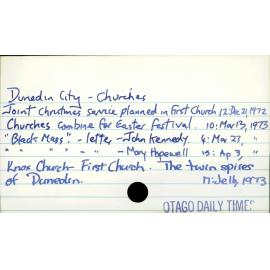 Dunedin City - Churches
Joint Christmas service planned in First Church 12:Dec 21, 1972
Churches combine for Easter Festival. 10:Mar 13, 1973
"Black Mass" - letter - John Kennedy 4:Mar 27, "
" " " " - Mary Hopewell 15:Ap 3, "
Knox Church - First Church. The twin spires
of Dunedin. 17:Je 16, 1973
OTAGO DAILY TIMES